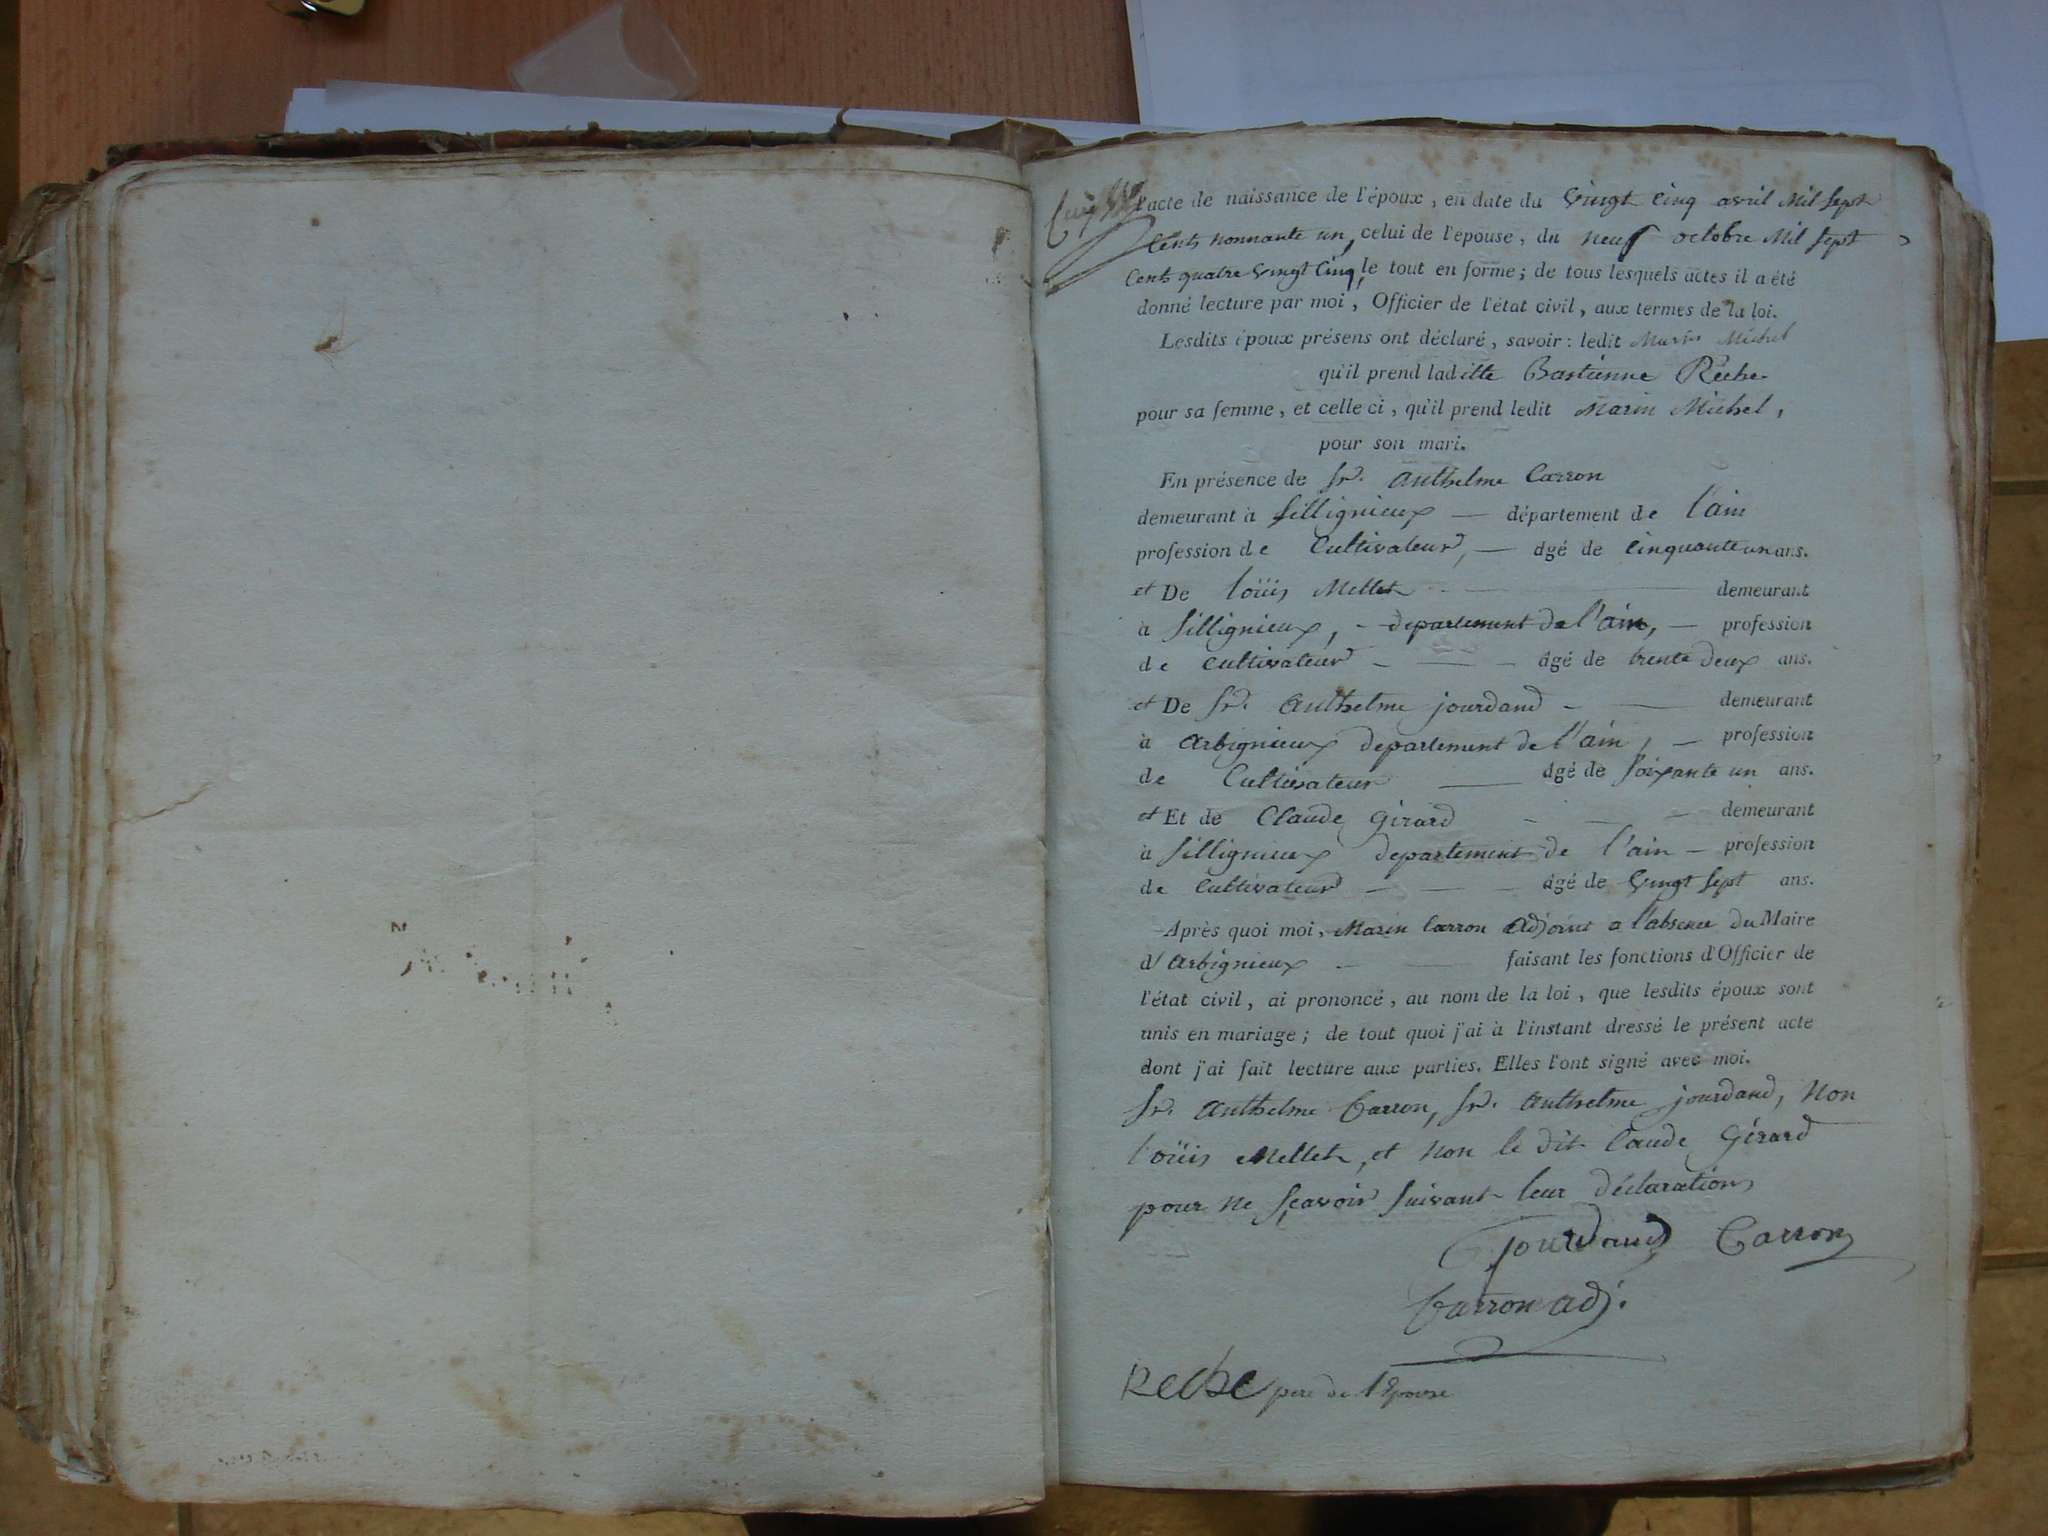 l'acte de naissance de l'époux, en date du vingt cinq avril Mil sept
Cents nonnante un, celui de l'épouse, du neuf octobre Mil sept
Cents quatre vingt cinq, le tout en forme; de tous lesquels actes il a été
donné lecture par moi, Officier de l'état civil, aux termes de la loi.
Lesdits époux présens ont déclaré, savoir: ledit Marin Michel
qu'il prend laditte Bastienne Reche
pour sa femme, et celle ci, qu'il prend ledit Marin Michel,
pour son mari.
En présence de Sr. Anthelme Carron
demeurant à Sillignieux — département de l'ain
profession de Cultivateur, — âgé de cinquante un ans.
et De loüis Mellet — demeurant
à Sillignieux, - departement de l'ain, — profession
de cultivateur - — - âgé de trente deux ans.
et De Sr. Anthelme jourdand - — demeurant
à Arbignieux departement de l'ain, — profession
de Cultivateur — âgé de soixante un ans.
et Et de Claude Girard - - — demeurant
à Sillignieux departement de l'ain — profession
de Cultivateur - — - âgé de vingt sept ans.
Après quoi moi, Marin Carron Adjoint a l'absence du Maire
d'Arbignieux - — faisant les fonctions d'Officier de
l'état civil, ai prononcé, au nom de la loi, que lesdits époux sont
unis en mariage; de tout quoi j'ai à l'instant dressé le présent acte
dont j'ai fait lecture aux parties. Elles l'ont signé avec moi.
Sr. Anthelme Carron, Sr. Anthelme jourdand, Non
loüis Mellet, et Non le dit Claude Girard
pour ne sçavoir suivant leur déclaration
Jourdand Carron
Carron adj.
Reche pere de l'Epouse